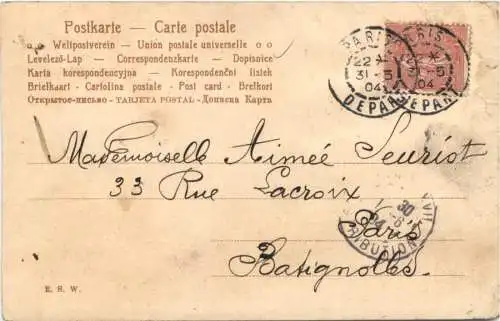 Postkarte — Carte postale
Weltpostverein — Union postale universelle
Levelező-Lap — Correspondenzkarte — Dopisnice
Karta korespondencyjna — Korespondenční listek
Brielkaart - Cartolina postale - Post card - Brefkort
Открытое-письмо - TARJETA POSTAL - Дописна Карта
PARIS
22 *
31 - 5
04
DEPART
PARIS
22 *
31 - 5
04
DEPART
Mademoiselle Aimée Seuriot
33 Rue Lacroix
Paris
Batignolles
XVII
30
DISTRIBUTION
E. S. W.